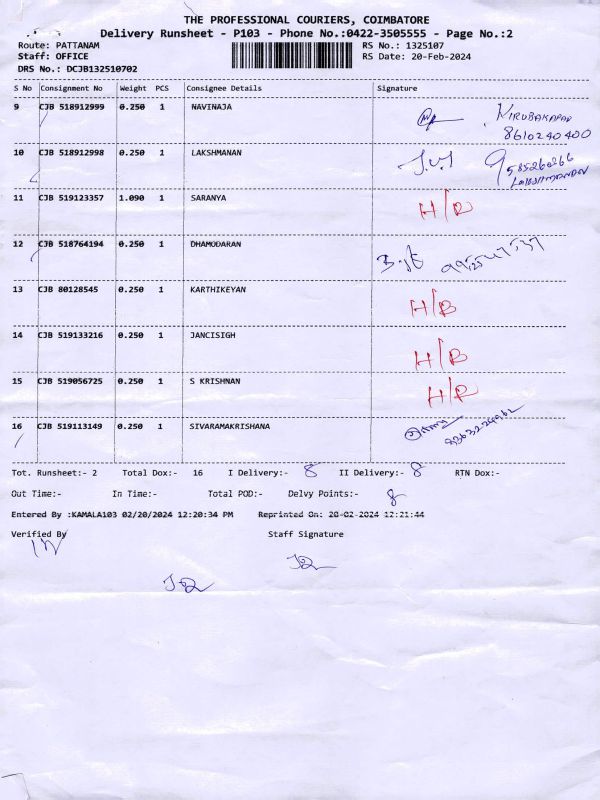 THE PROFESSIONAL COURIERS, COIMBATORE
Delivery Runsheet - P103 - Phone No.:0422-3505555 - Page No.:2
Route: PATTANAM RS No.: 1325107
Staff: OFFICE RS Date: 20-Feb-2024
DRS No.: DCJB132510702
S No Consignment No Weight PCS Consignee Details Signature
9 CJB 518912999 0.250 1 NAVINAJA
8610240400
10 CJB 518912998 0.250 1 LAKSHMANAN
9585260266
11 CJB 519123357 1.090 1 SARANYA
12 CJB 518764194 0.250 1 DHAMODARAN
13 CJB 80128545 0.250 1 KARTHIKEYAN H/B
14 CJB 519133216 0.250 1 JANCISIGH H/B
15 CJB 519056725 0.250 1 S KRISHNAN
16 CJB 519113149 0.250 1 SIVARAMAKRISHANA
Tot. Runsheet:- 2 Total Dox:- 16 I Delivery:- 8 II Delivery:- 8 RTN Dox:-
Out Time:- In Time:- Total POD:- Delvy Points:- 8
Entered By :KAMALA103 02/20/2024 12:20:34 PM Reprinted On: 20-02-2024 12:21:44
Verified By Staff Signature